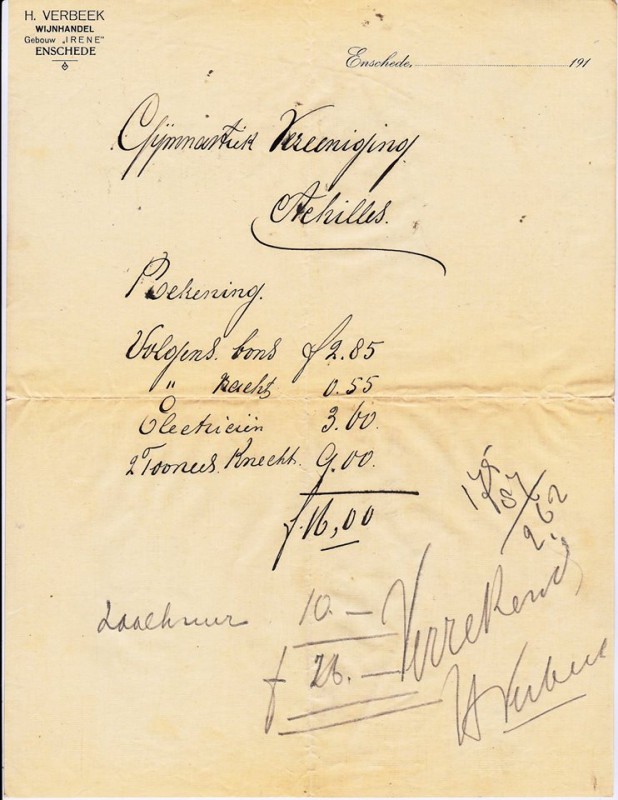 H. VERBEEK
WIJNHANDEL
Gebouw „IRENE"
ENSCHEDE
Enschede, 191
Gijmnastiek Vereeniging
Achilles.
Rekening.
Volgens. bons f 2.85
„ 0.55
Electricien 3.60
2 Tooneel Knecht. 9.00.
f. 16,00
Zaalhuur 10.—
f 26.—
Verrekend
H Verbeek